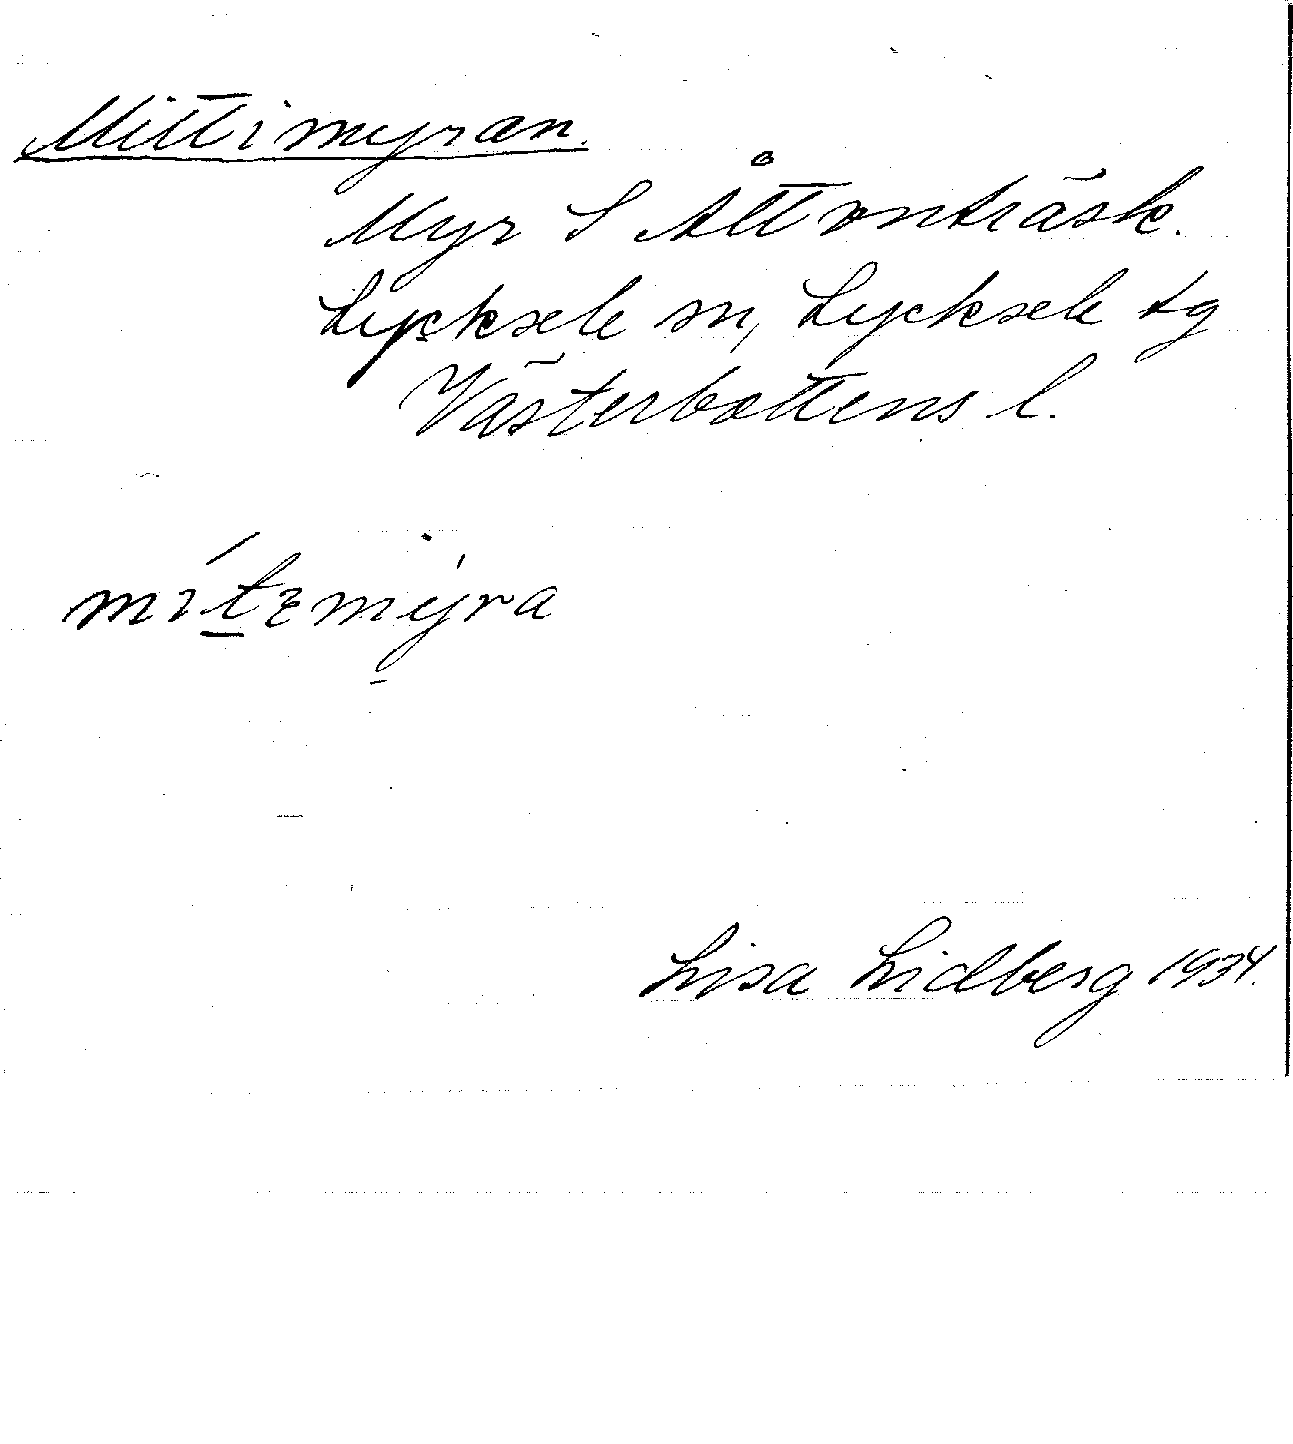 Mittimyran.
Myr S Åttonträsk.
Lycksele sn, Lycksele tg
Västerbottens l.
Lisa Lidberg 1934.